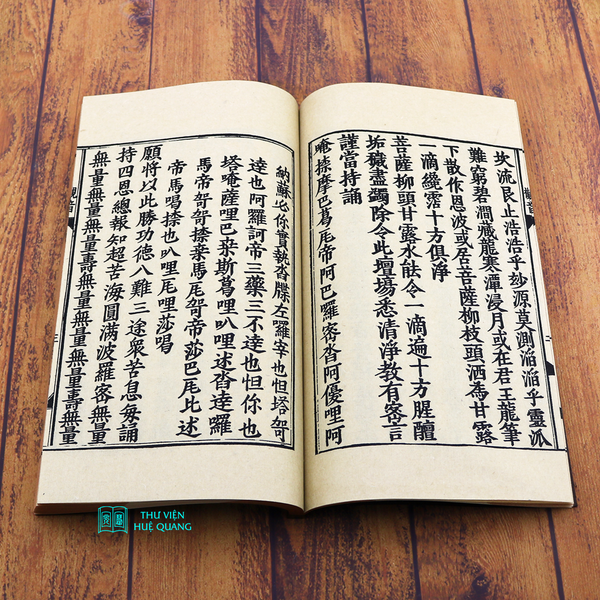 坎流艮止浩浩乎玅源莫測滔滔乎靈派
難窮碧澗藏龍寒潭浸月或在君王龍筆
下散作恩波或居菩薩柳枝頭洒為甘露
一滴纔霑十方俱淨
菩薩柳頭甘露水䏻令一滴遍十方腥膻
垢穢盡蠲除令此壇塲悉清淨教有密言
謹當持誦
唵捺摩巴葛瓦帝阿巴囉密沓阿優哩阿
納蘇必你實執沓牒左囉宰也怛塔哿
達也阿羅訶帝三藥三不達也怛你也
塔唵薩哩巴桒斯葛哩叭哩述沓達囉
馬帝哿哿捺桒馬瓦哿帝莎巴瓦比述
帝馬喝捺也叭哩瓦哩莎喝
願將以此勝功德八難三途衆苦息每誦
持四恩總報知超苦海圓滿波羅密無量
無量無量壽無量無量無量壽無量
THƯ VIỆN
HUỆ QUANG